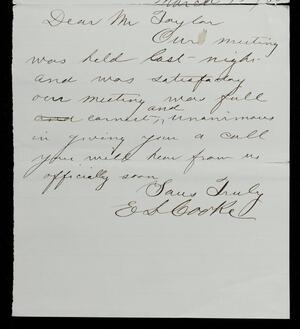 March
Dear Mr Taylor
Our meeting
was held last night
and was satisfaday
our meeting was full
and earnest, and unanimous
in giving you a call
you will hear from us
officially soon
Yours Truly
E S Cooke